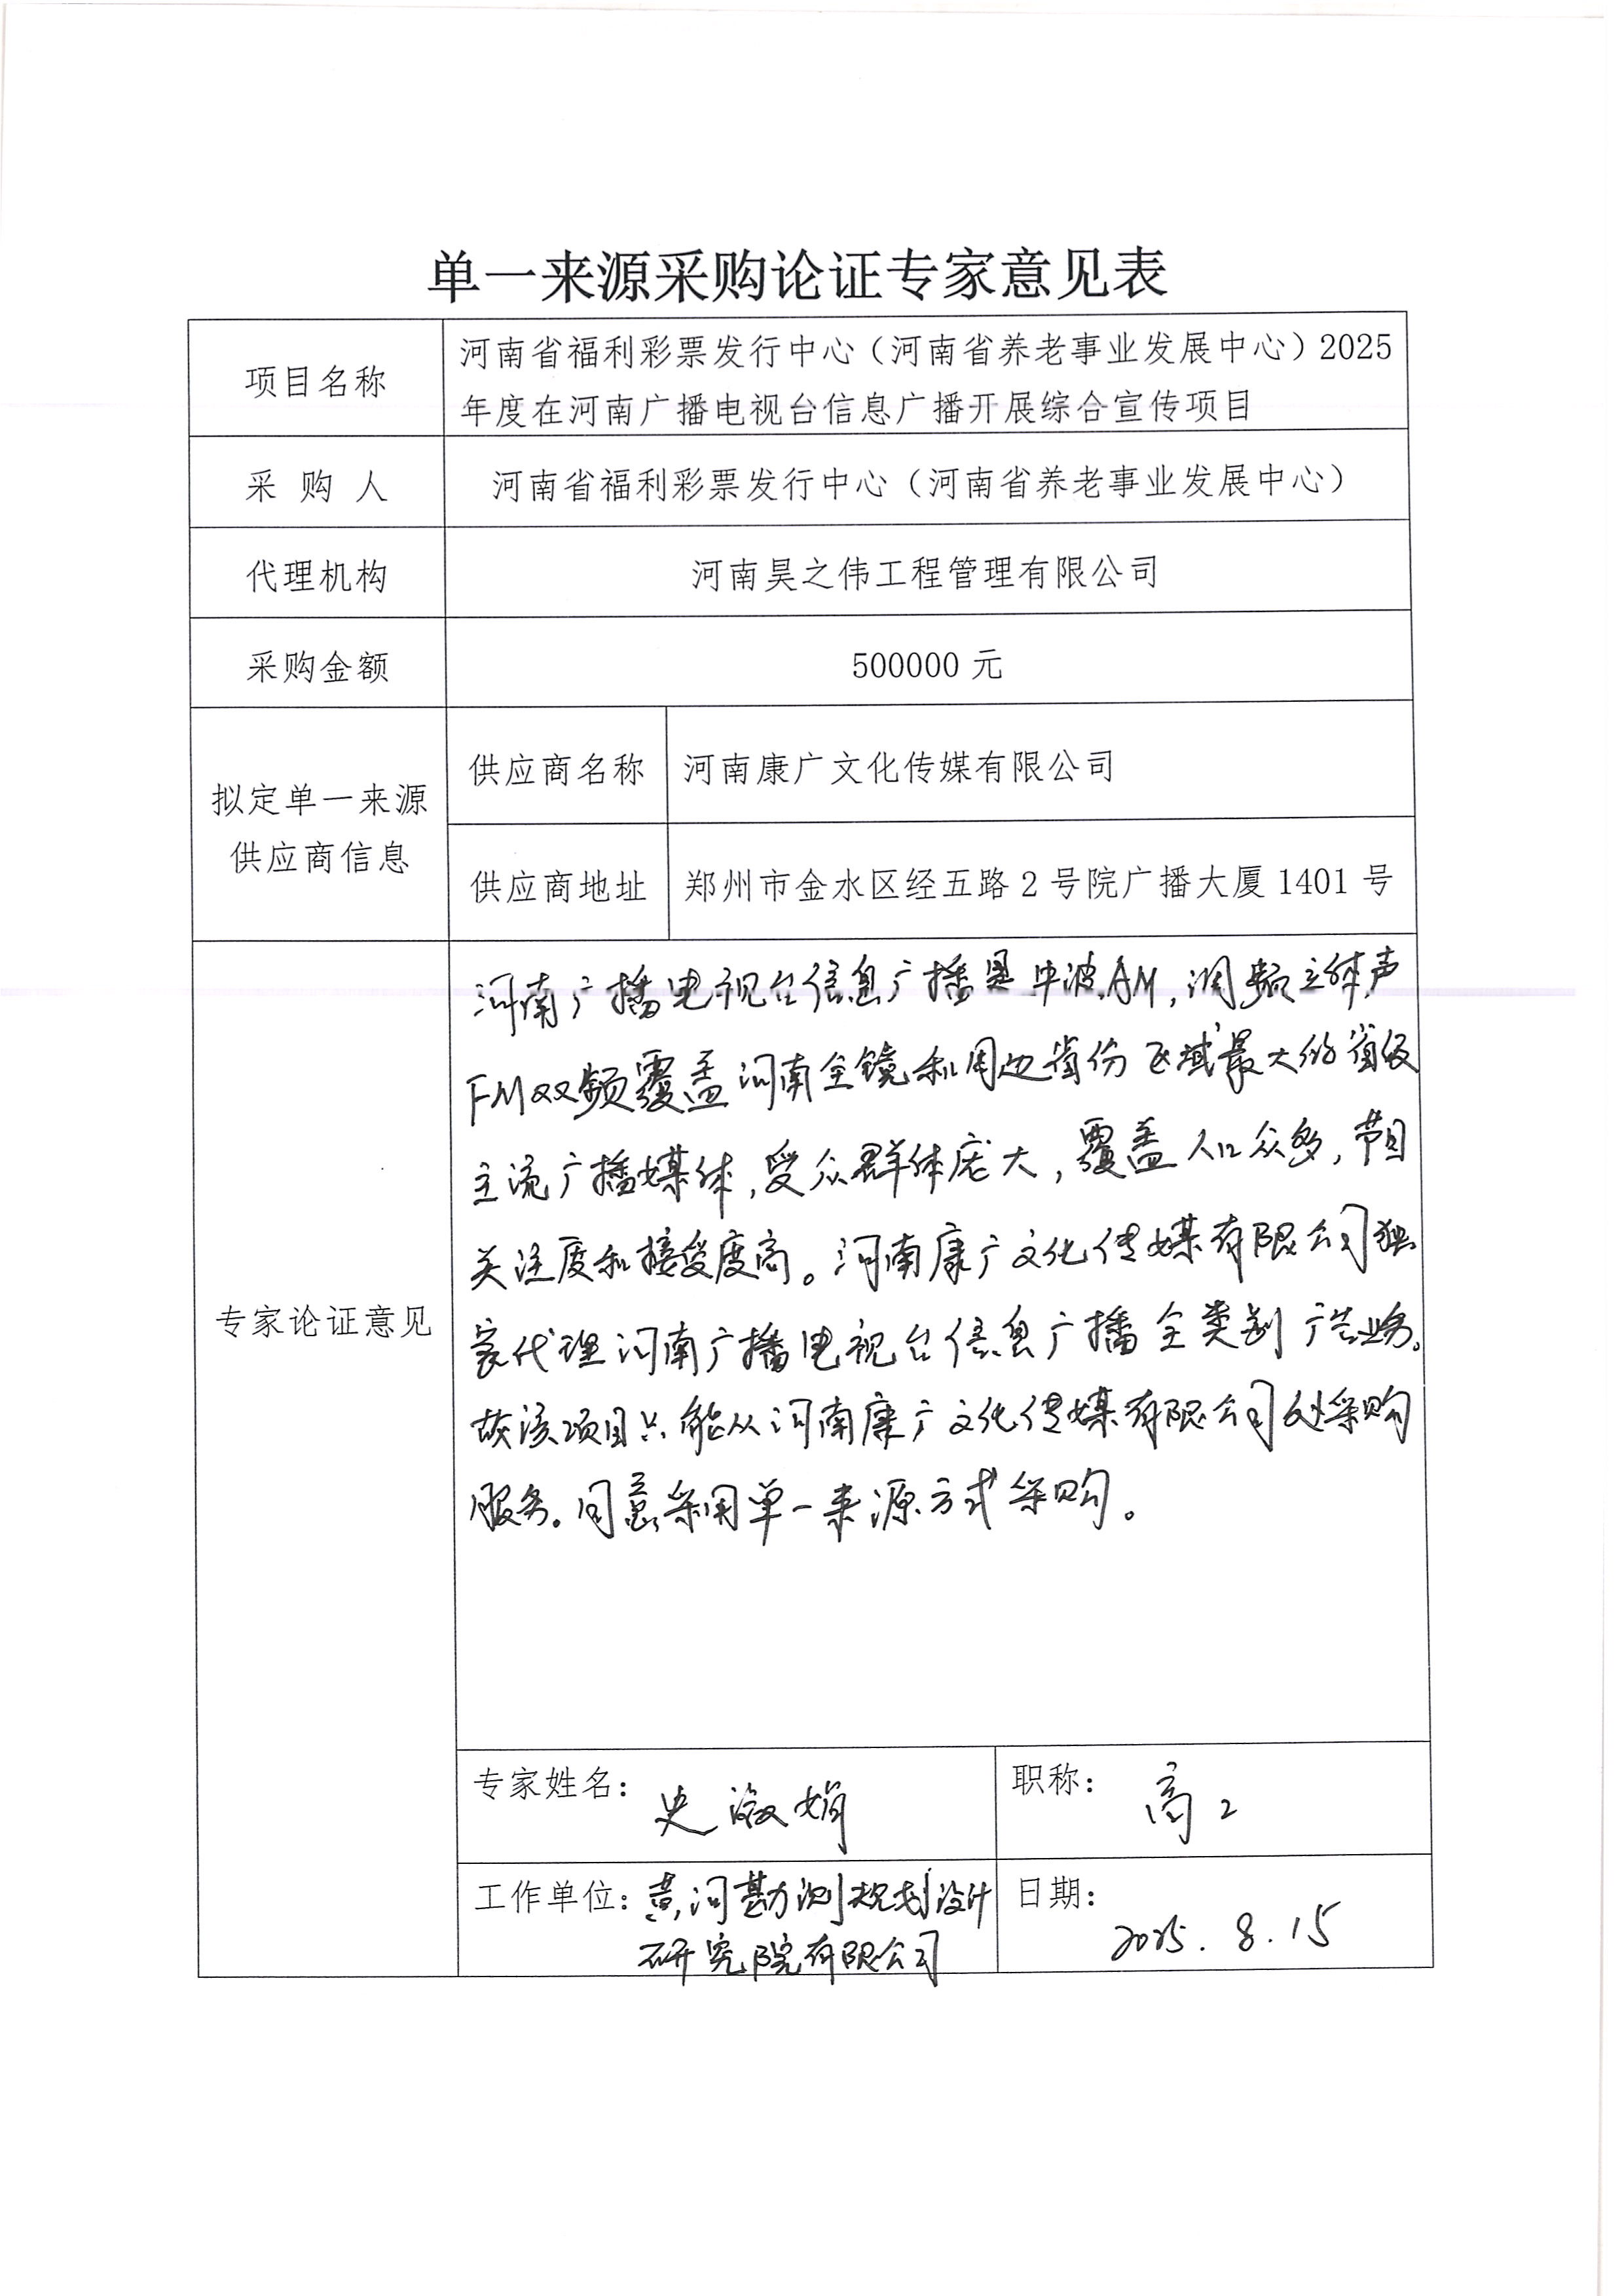 单一来源采购论证专家意见表
项目名称
河南省福利彩票发行中心（河南省养老事业发展中心）2025
年度在河南广播电视台信息广播开展综合宣传项目
采 购 人
河南省福利彩票发行中心（河南省养老事业发展中心）
代理机构
河南昊之伟工程管理有限公司
采购金额
500000 元
拟定单一来源
供应商信息
供应商名称
河南康广文化传媒有限公司
供应商地址
郑州市金水区经五路 2 号院广播大厦 1401 号
专家论证意见
河南广播电视台信息广播是中波AM，调频立体声
FM双频覆盖河南全镜和周边省份区域最大的省级
主流广播媒体，受众群体庞大，覆盖人口众多，节目
关注度和接受度高。河南康广文化传媒有限公司独
家代理河南广播电视台信息广播全类别广告业务。
故该项目只能从河南康广文化传媒有限公司处采购
服务。同意采用单一来源方式采购。
专家姓名：史淑娟
职称：高工
工作单位：黄河勘测规划设计
研究院有限公司
日期：
2025.8.15